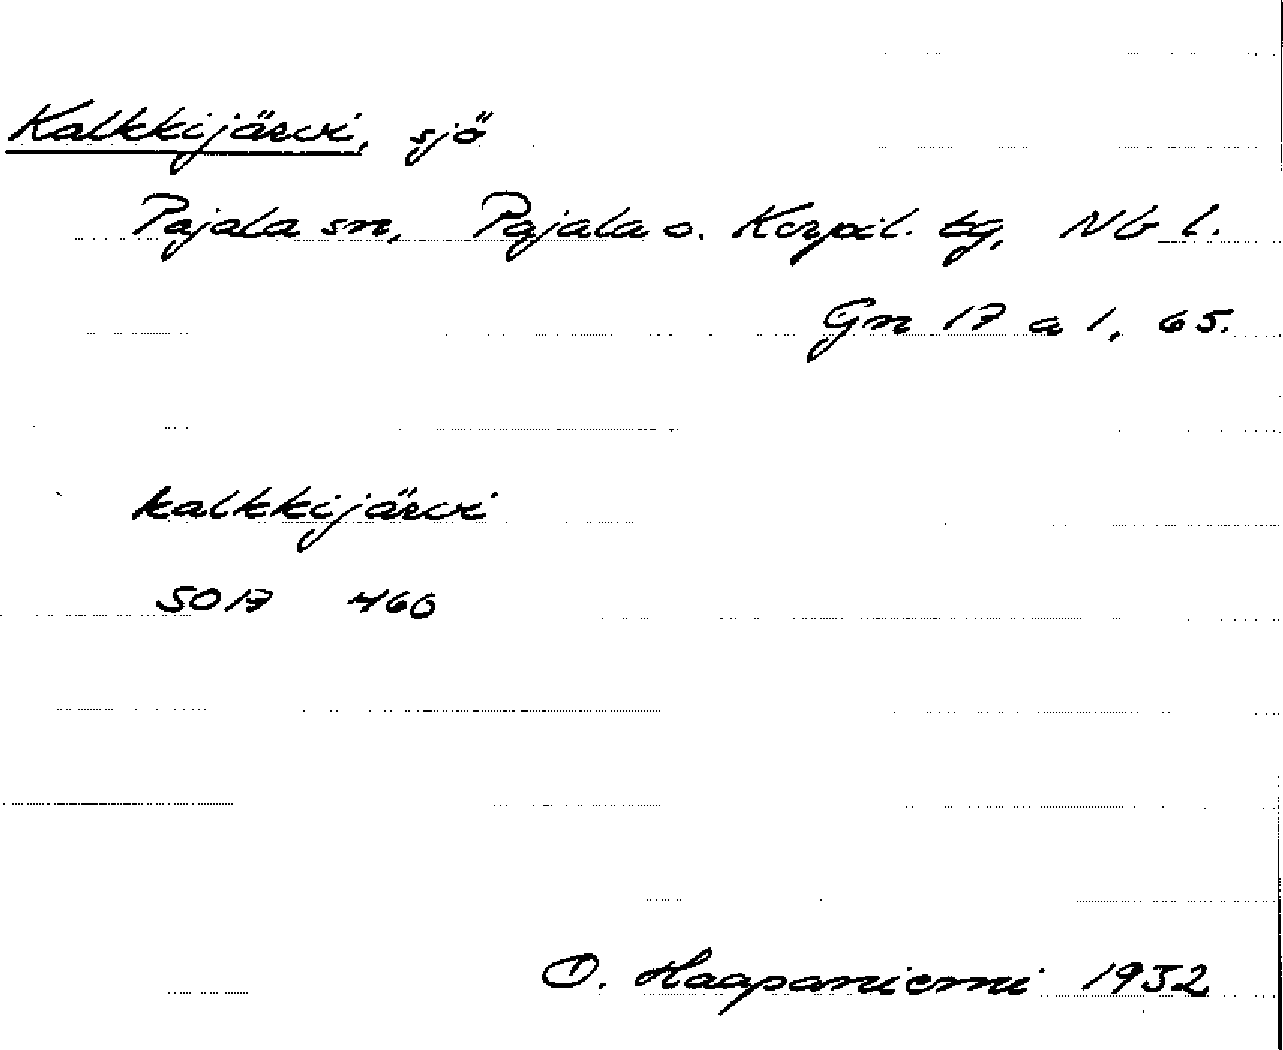 Kalkkijärvi, sjö
Pajala sn, Pajala o. Korpil. tg, Nb l.
Gn 17 a 1, 65.
kalkkijärvi
5017 460
O. Haapaniemi 1952